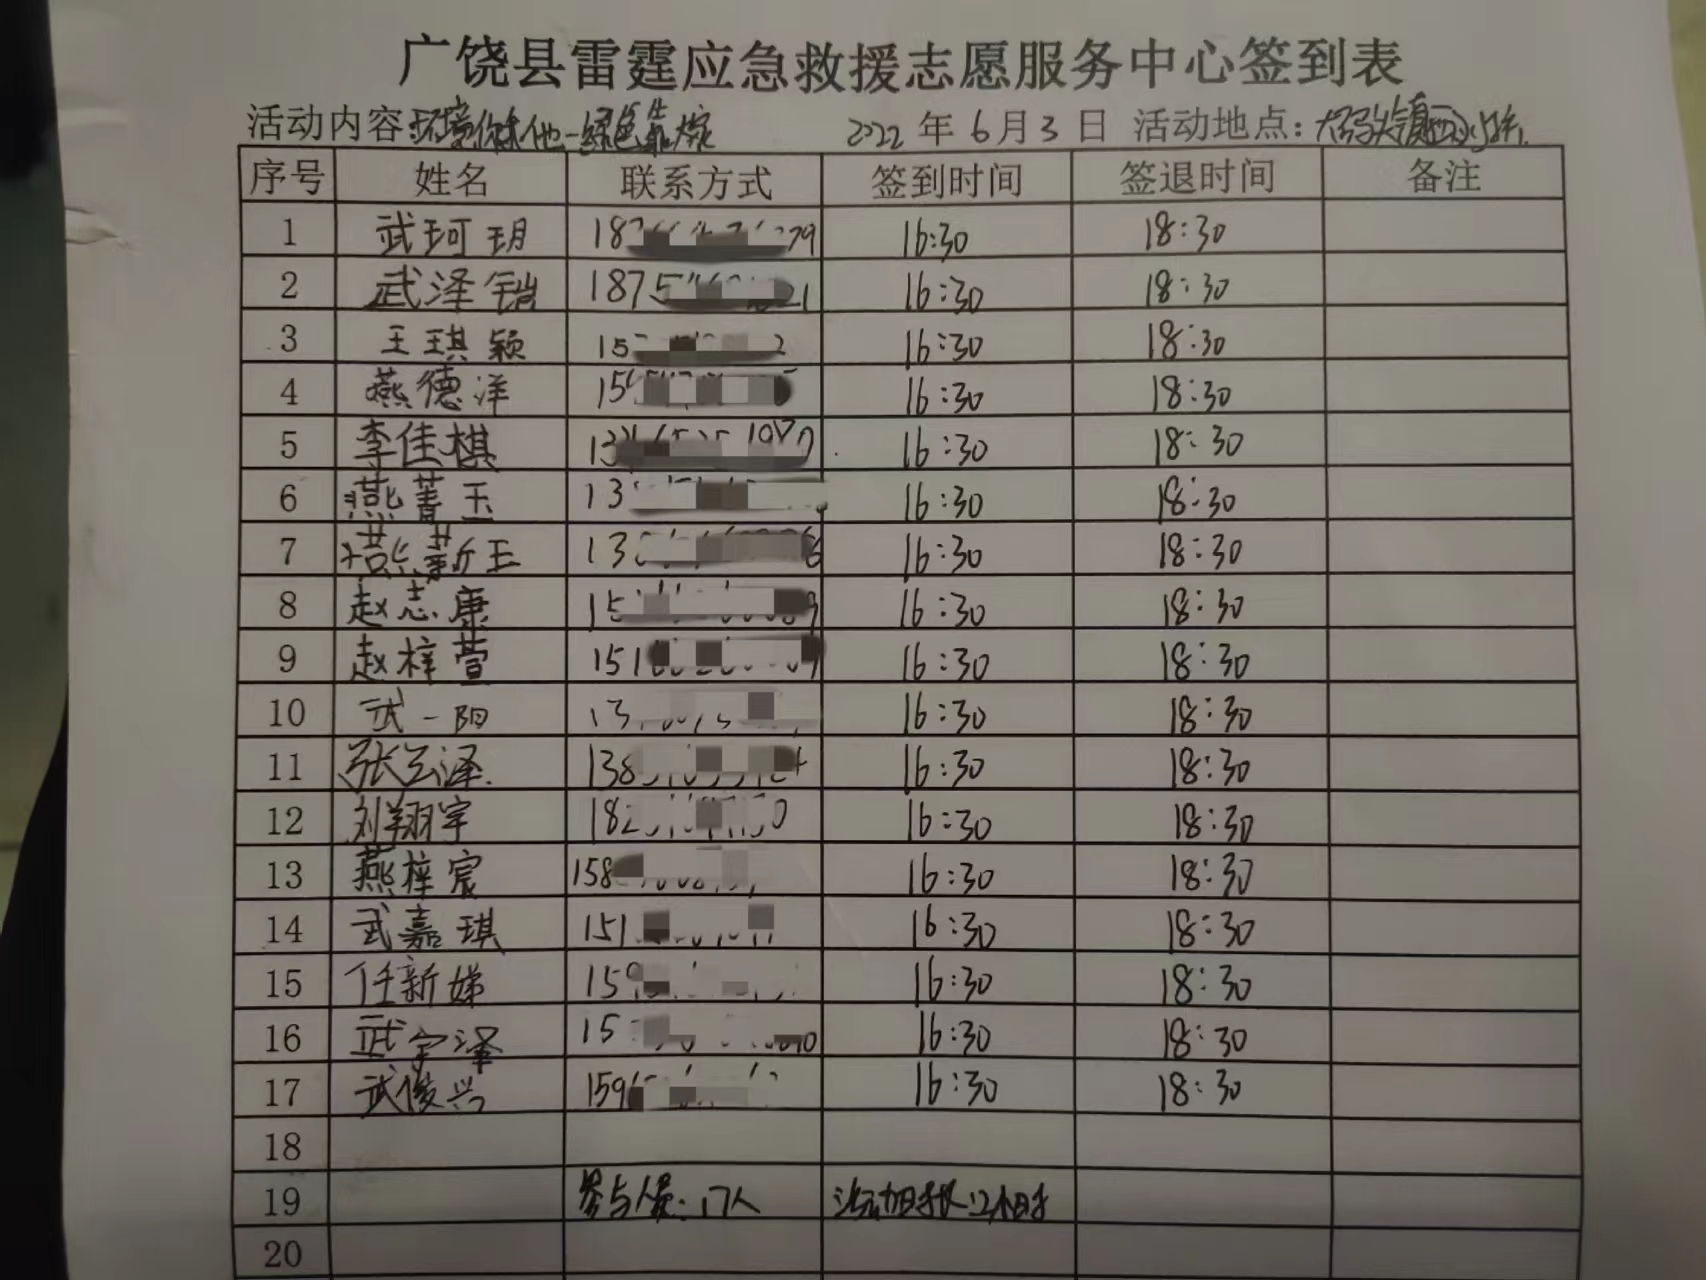 广饶县雷霆应急救援志愿服务中心签到表
活动内容:环境你我他一绿色靠大家 2022年6月3日 活动地点:大码头镇
序号 姓名 联系方式 签到时间 签退时间 备注
1 武珂玥 18 79 16:30 18:30
2 武泽锴 1875 21 16:30 18:30
3 王琪颖 15 2 16:30 18:30
4 燕德洋 15 16:30 18:30
5 李佳棋 13 16:30 18:30
6 燕菁玉 13 16:30 18:30
7 燕新玉 13 6 16:30 18:30
8 赵志康 15 9 16:30 18:30
9 赵梓萱 151 16:30 18:30
10 武一阳 13 16:30 18:30
11 张云泽 138 16:30 18:30
12 刘翔宇 182 0 16:30 18:30
13 燕梓宸 158 16:30 18:30
14 武嘉琪 151 16:30 18:30
15 任新娣 159 16:30 18:30
16 武宇泽 15 16:30 18:30
17 武俊兴 159 16:30 18:30
18
19 参与人员:17人 活动时长:2小时
20